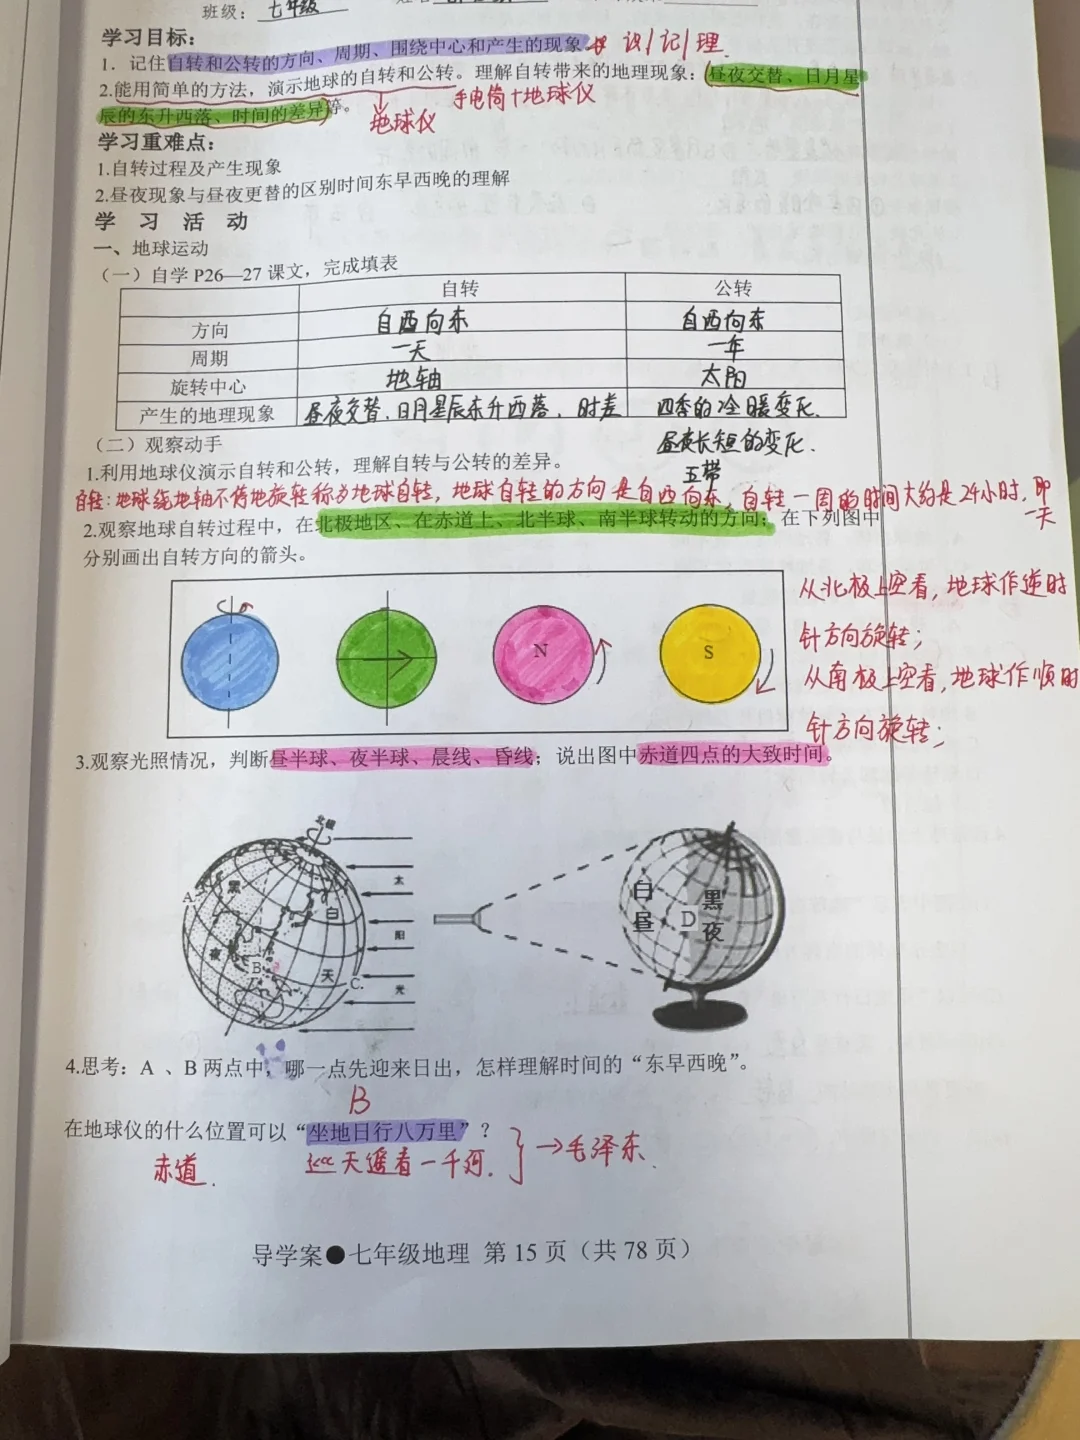 班级：七年级
学习目标：
1．记住自转和公转的方向、周期、围绕中心和产生的现象 识/记/理
2.能用简单的方法，演示地球的自转和公转。理解自转带来的地理现象：昼夜交替、日月星
手电筒+地球仪
辰的东升西落、时间的差异等。
地球仪
学习重难点：
1.自转过程及产生现象
2.昼夜现象与昼夜更替的区别时间东早西晚的理解
学 习 活 动
一、地球运动
（一）自学 P26—27 课文，完成填表
自转 公转
方向 自西向东 自西向东
周期 一天 一年
旋转中心 地轴 太阳
产生的地理现象 昼夜交替、日月星辰东升西落、时差 四季的冷暖变化.
（二）观察动手 昼夜长短的变化.
1.利用地球仪演示自转和公转，理解自转与公转的差异。 五带
自转：地球绕地轴不停地旋转称为地球自转，地球自转的方向是自西向东，自转一周的时间大约是24小时，即
一天
2.观察地球自转过程中，在北极地区、在赤道上、北半球、南半球转动的方向；在下列图中
分别画出自转方向的箭头。
N
S
从北极上空看，地球作逆时
针方向旋转；
从南极上空看，地球作顺时
针方向旋转；
3.观察光照情况，判断昼半球、夜半球、晨线、昏线；说出图中赤道四点的大致时间。
北极
A
黑
夜
B
白
天
C
太
阳
光
白
昼
D
黑
夜
4.思考：A 、B 两点中，哪一点先迎来日出，怎样理解时间的“东早西晚”。
B
在地球仪的什么位置可以“坐地日行八万里”？
赤道. 巡天遥看一千河. →毛泽东.
导学案●七年级地理 第 15 页（共 78 页）